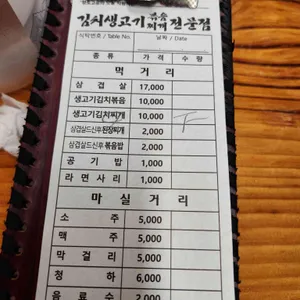 김치생고기 볶음 찌개 전문점
식탁번호 / Table No. 날짜 / Date
종류 가격 수량
먹거리
삼겹살 17,000
생고기김치볶음 10,000
생고기김치찌개 10,000 ㅜ
삼겹살드신후된장찌개 2,000
삼겹살드신후볶음밥 2,000
공기밥 1,000
라면사리 1,000
마실거리
소주 5,000
맥주 5,000
막걸리 5,000
청하 6,000
음료수 2,000